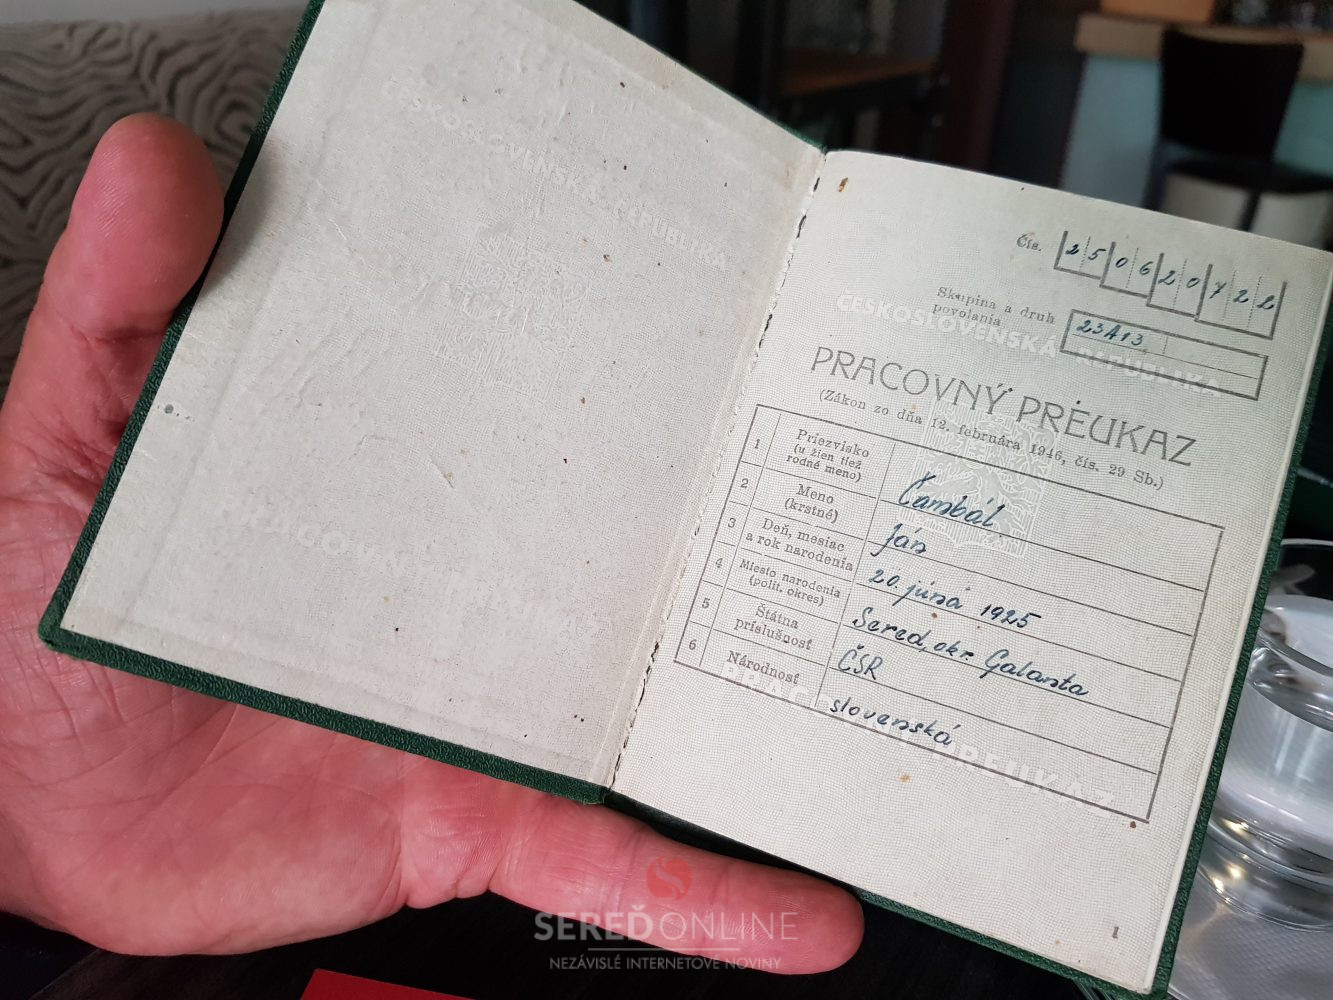 ČESKOSLOVENSKÁ REPUBLIKA
Čís. 250620722
Skupina a druh
povolania
23A13
ČESKOSLOVENSKÁ REPUBLIKA
PRACOVNÝ PREUKAZ
(Zákon zo dňa 12. februára 1946, čís. 29 Sb.)
1 Priezvisko
(u žien tiež
rodné meno)
Čambál
2 Meno
(krstné)
Ján
3 Deň, mesiac
a rok narodenia
20. júna 1925
4 Miesto narodenia
(polit. okres)
Sereď, okr. Galanta
5 Štátna
príslušnosť
ČSR
6 Národnosť
slovenská
PRACOVNÝ PREUKAZ
1
SEREĎONLINE
NEZÁVISLÉ INTERNETOVÉ NOVINY